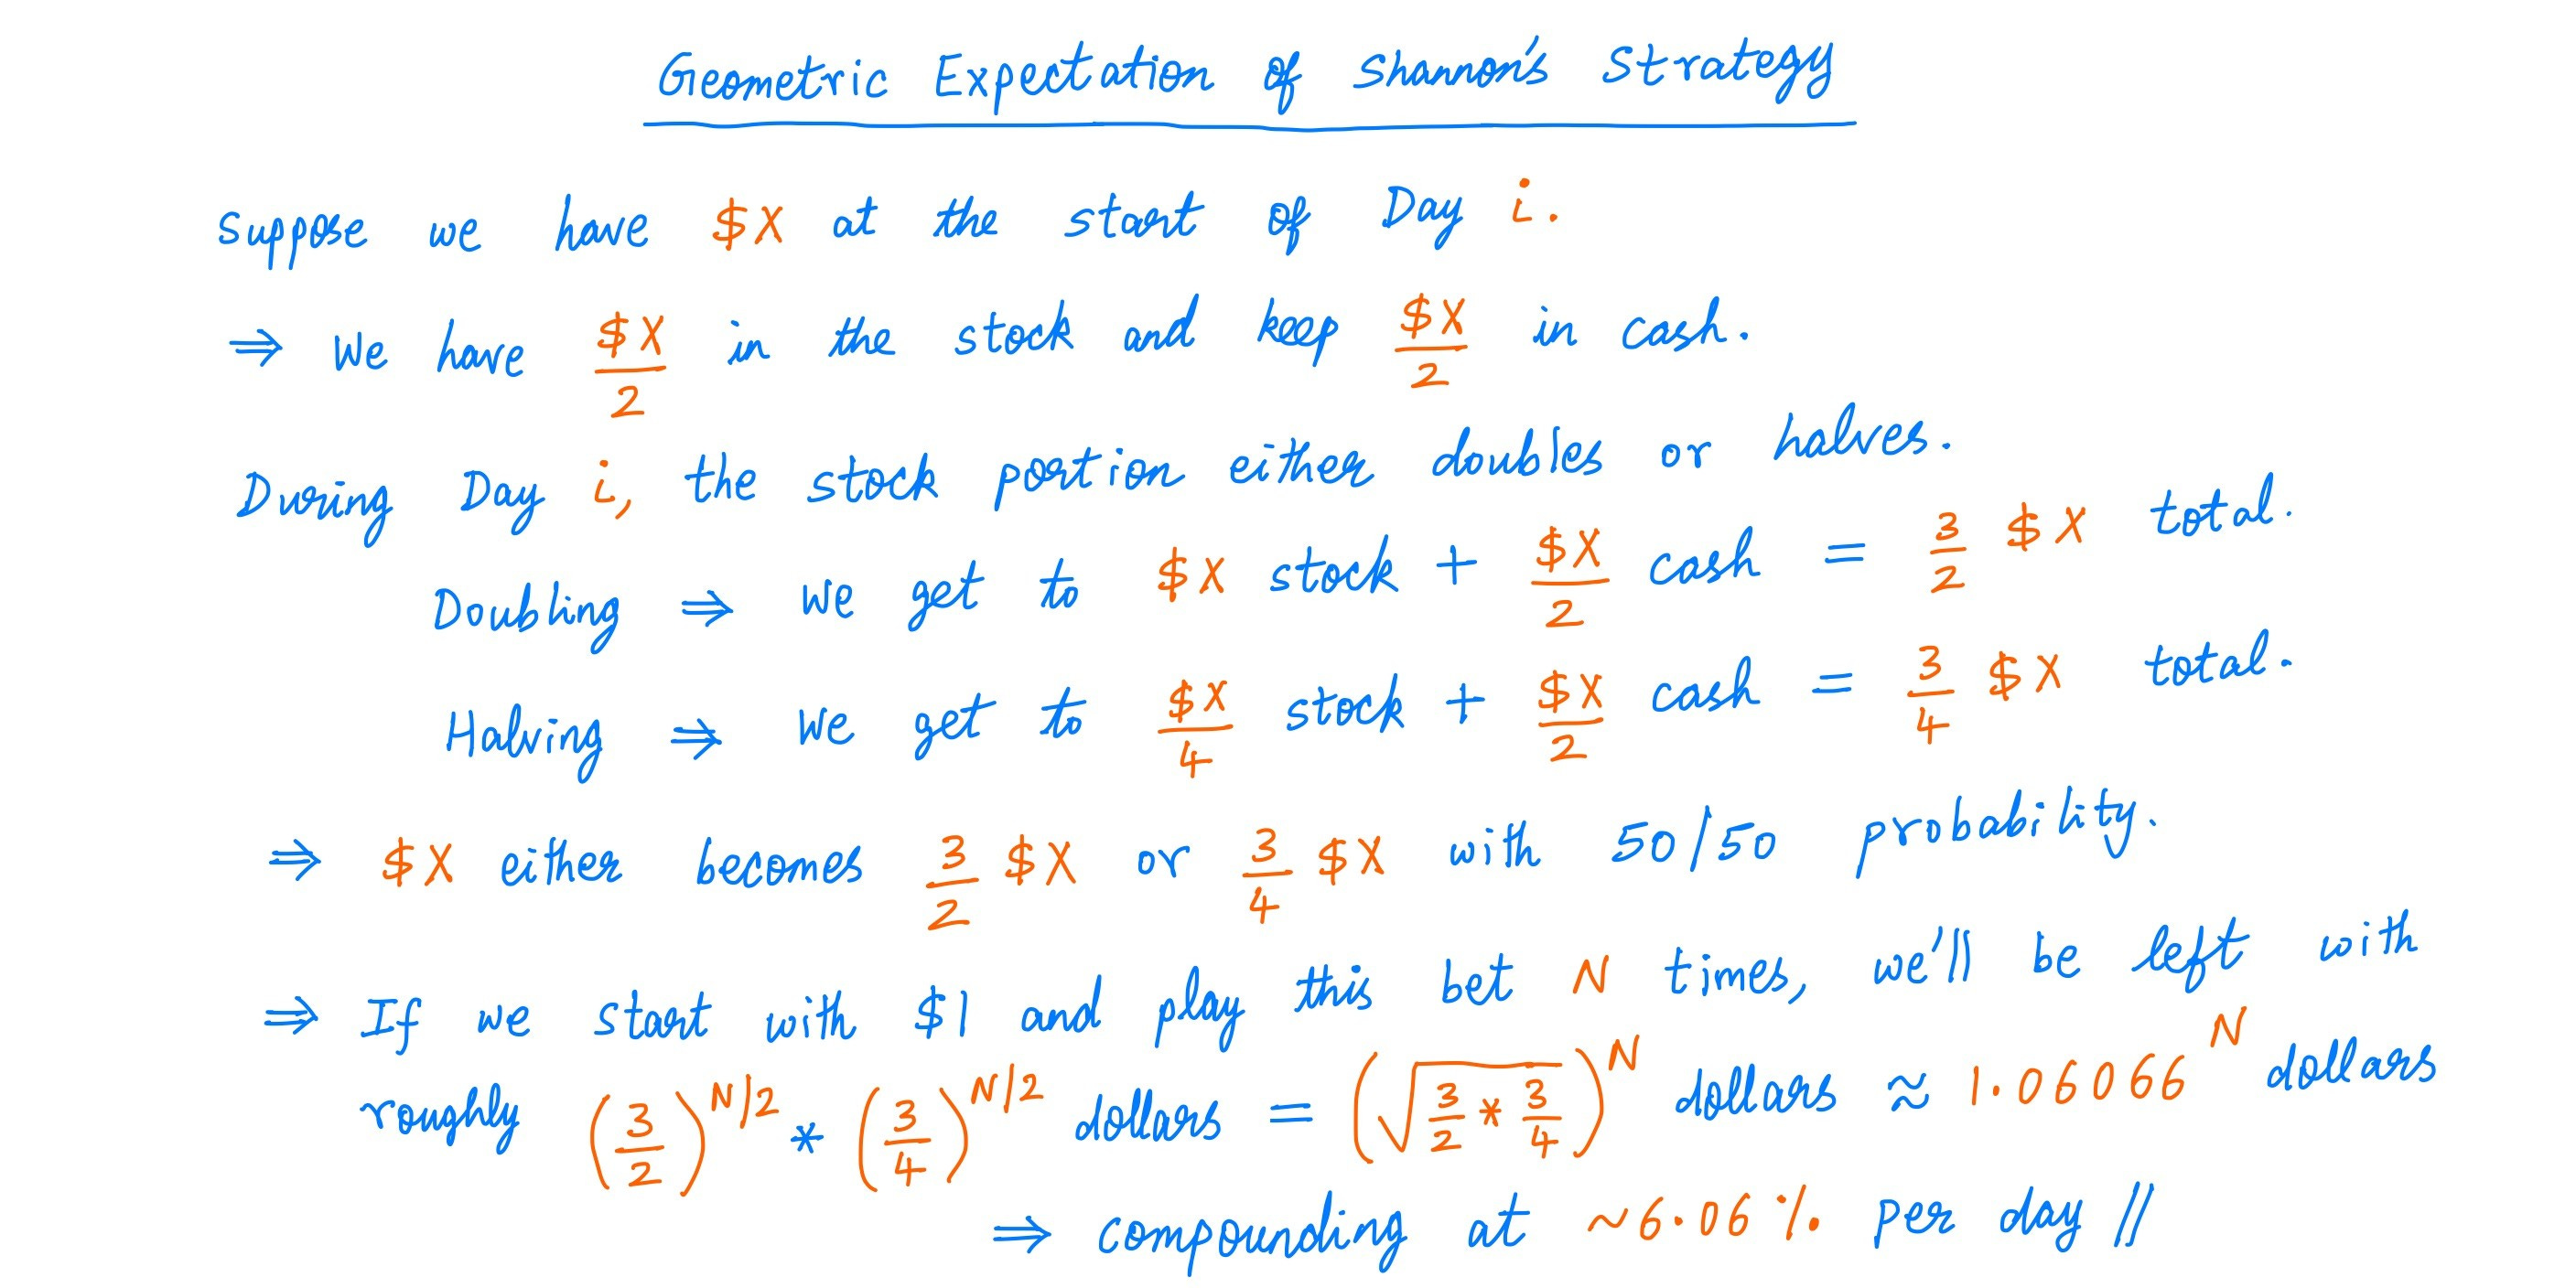 Geometric Expectation of Shannon's Strategy
Suppose we have $X at the start of Day i.
⇒ We have $X/2 in the stock and keep $X/2 in cash.
During Day i, the stock portion either doubles or halves.
Doubling ⇒ We get to $X stock + $X/2 cash = 3/2 $X total.
Halving ⇒ We get to $X/4 stock + $X/2 cash = 3/4 $X total.
⇒ $X either becomes 3/2 $X or 3/4 $X with 50/50 probability.
⇒ If we start with $1 and play this bet N times, we'll be left with
roughly (3/2)^N/2 * (3/4)^N/2 dollars = (√(3/2 * 3/4))^N dollars ≈ 1.06066^N dollars
⇒ compounding at ~6.06% per day //